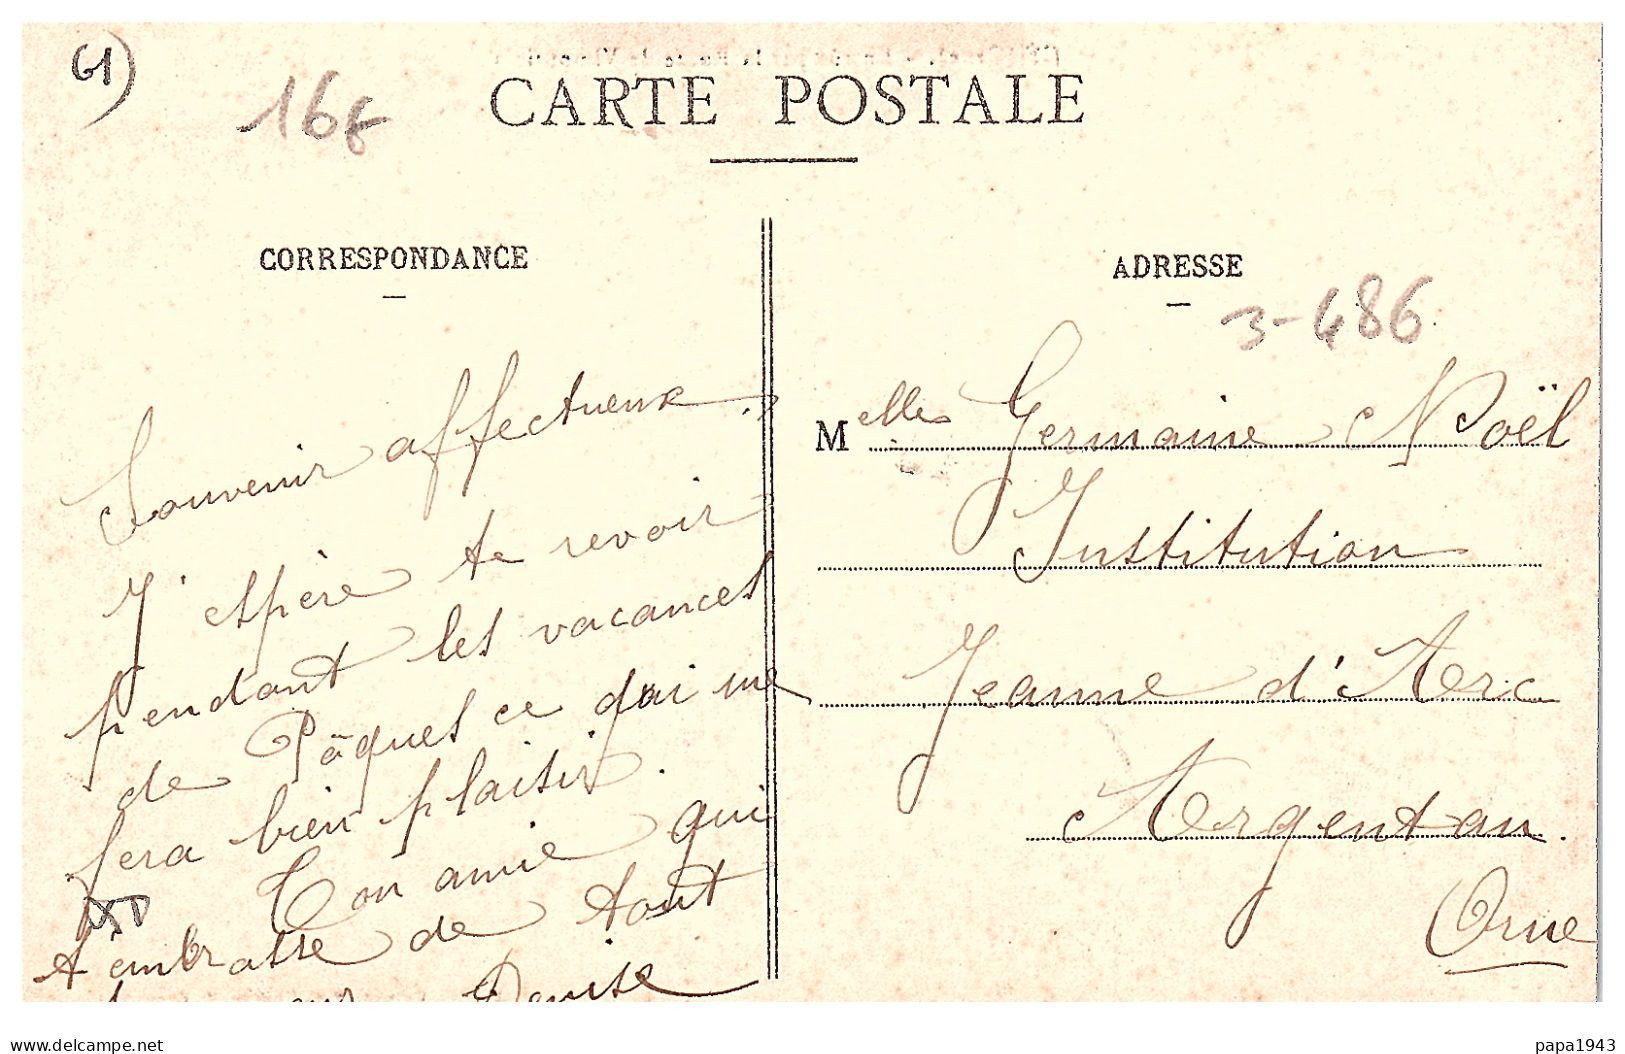 61)
16f
CARTE POSTALE
CORRESPONDANCE
Souvenir affectueux.
J'espère te revoir
pendant les vacances
de Pâques ce qui me
fera bien plaisir.
Ton amie qui
t'embrasse de tout
Denise
ADRESSE
3-486
Melles Germaine Noël
Institution
Jeanne d'Arc
Argentan.
Orne
www.delcampe.net
papa1943